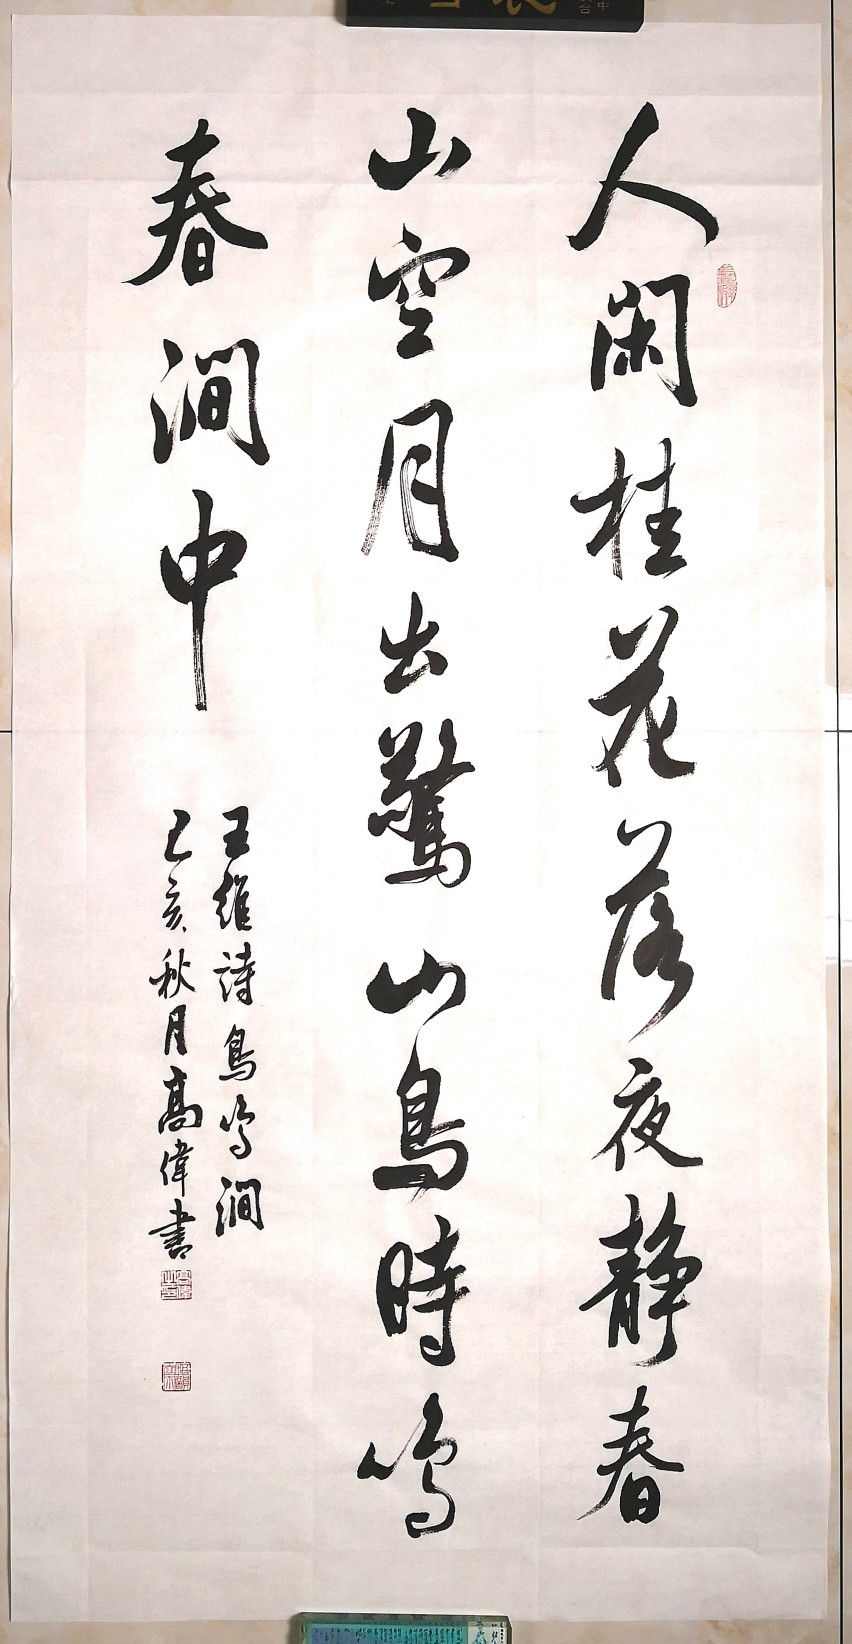 人闲桂花落夜静春
山空月出驚山鳥時鸣
春澗中
王維詩鳥鸣澗
己亥秋月高偉書